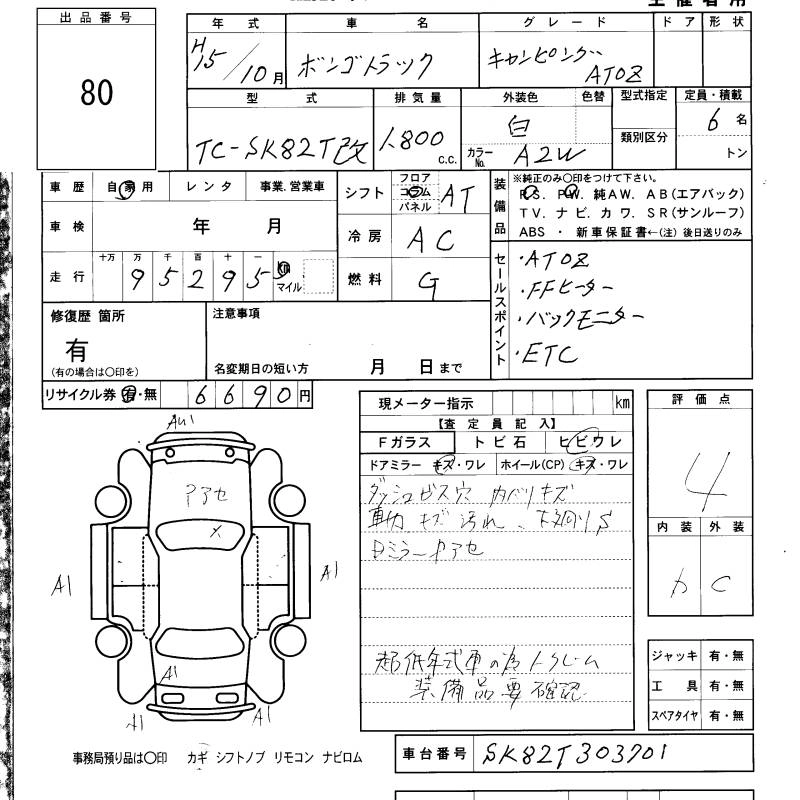 出品番号
80
年式 車名 グレード ドア 形状
H15/10月 ボンゴトラック キャンピング ATOZ
型式 排気量 外装色 色替 型式指定 定員・積載
TC-SK82T改 1,800 c.c. 白 類別区分 6名
カラーNo. A2W トン
車歴 自家用 レンタ 事業.営業車
シフト フロア コラム パネル AT
装備品 ※純正のみ〇印をつけて下さい。
P.S. P.W. 純AW. AB(エアバック)
TV. ナビ. カワ. SR(サンルーフ)
ABS ・ 新車保証書←(注) 後日送りのみ
車検 年 月
冷房 AC
走行 十万 万 千 百 十 一
95295 km マイル
燃料 G
セールスポイント
・ATOZ
・FFヒーター
・バックモニター
・ETC
修復歴 箇所
有
(有の場合は〇印を)
注意事項
名変期日の短い方 月 日まで
リサイクル券 有・無 6690円
現メーター指示 km
【査定員記入】
Fガラス トビ石 ヒビワレ
ドアミラー キズ・ワレ ホイール(CP) キズ・ワレ
ダッシュビス穴 内ハリキズ
キズ 汚れ、 S
ミラー
超低年式車の為
装備品要確認
評価点
4
内装 外装
C
AU1
X
A1
A1
A1
A1
A1
ジャッキ 有・無
工具 有・無
スペアタイヤ 有・無
事務局預り品は〇印 カギ シフトノブ リモコン ナビロム
車台番号 SK82T303701